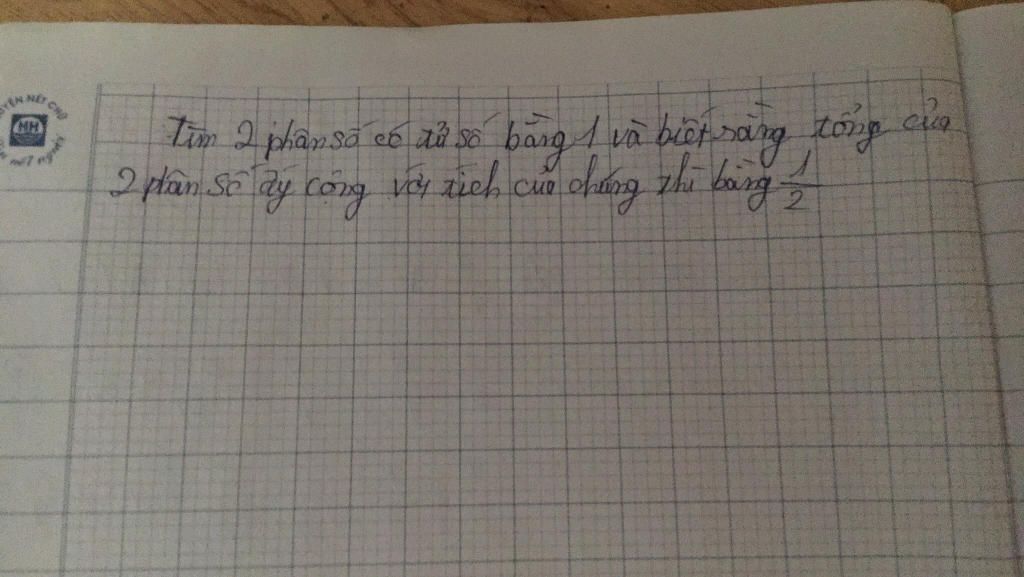 Tìm 2 phân số có tử số bằng 1 và biết rằng tổng của
2 phân số ấy cộng với tích của chúng thì bằng 1/2
MH